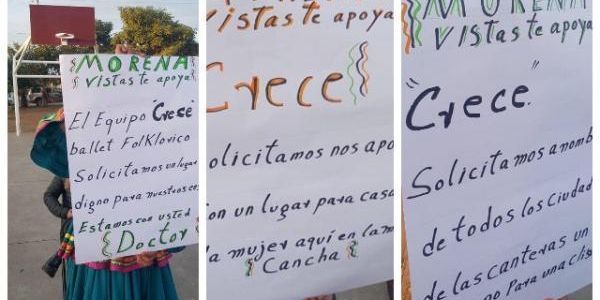 MORENA
vistas te apoya
El Equipo "Crece"
ballet Folklorico
Solicitamos un lugar
digno para nuestros
Estamos con usted
Doctor
vistas te apoya
Crece
olicitamos nos apo
on un lugar para casa
la mujer aquí en la m
Cancha
MORENA
vistas te apoya
"Crece"
Solicitamos a nomb
de todos los Ciudad
de las canteras un
no Para una clí